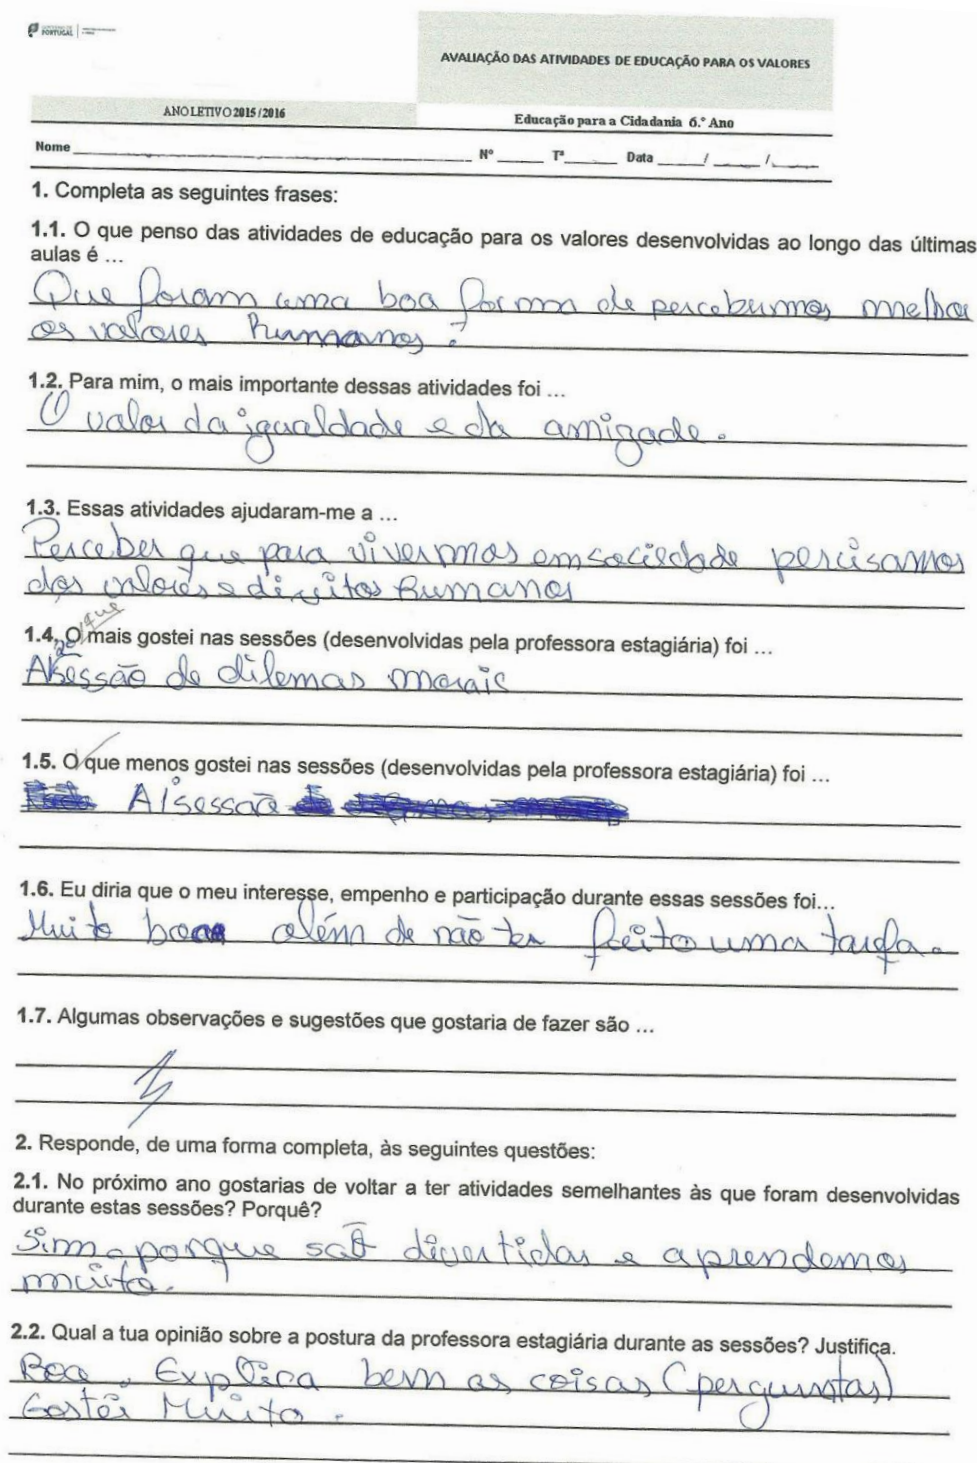 GOVERNO DE
PORTUGAL
AVALIAÇÃO DAS ATIVIDADES DE EDUCAÇÃO PARA OS VALORES
ANO LETIVO 2015/2016
Educação para a Cidadania 6.º Ano
Nome Nº Tª Data / /
1. Completa as seguintes frases:
1.1. O que penso das atividades de educação para os valores desenvolvidas ao longo das últimas
aulas é ...
Que foram uma boa forma de percebermos melhor
os valores humanos.
1.2. Para mim, o mais importante dessas atividades foi ...
O valor da igualdade e da amizade.
1.3. Essas atividades ajudaram-me a ...
Perceber que para vivermos em sociedade percisamos
dos valores e direitos humanos
1.4. O que mais gostei nas sessões (desenvolvidas pela professora estagiária) foi ...
A sessão de dilemas morais
1.5. O que menos gostei nas sessões (desenvolvidas pela professora estagiária) foi ...
A 1ª sessão
1.6. Eu diria que o meu interesse, empenho e participação durante essas sessões foi...
Muito boa além de não ter feito uma tarefa.
1.7. Algumas observações e sugestões que gostaria de fazer são ...
2. Responde, de uma forma completa, às seguintes questões:
2.1. No próximo ano gostarias de voltar a ter atividades semelhantes às que foram desenvolvidas
durante estas sessões? Porquê?
Sim, porque são divertidas e aprendemos
muito.
2.2. Qual a tua opinião sobre a postura da professora estagiária durante as sessões? Justifica.
Boa, Explica bem as coisas (perguntas)
Gostei Muito.